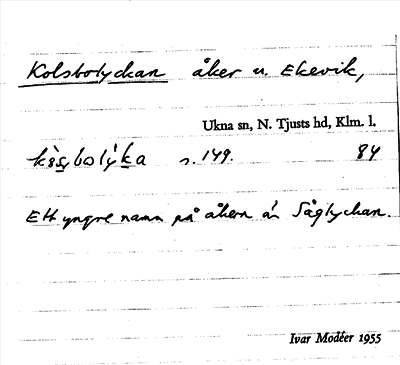 Kolsbolyckan åker u. Ekevik,
Ukna sn, N. Tjusts hd, Klm. l.
s. 149. 84
Ett yngre namn på åkern är Såglyckan.
Ivar Modéer 1955